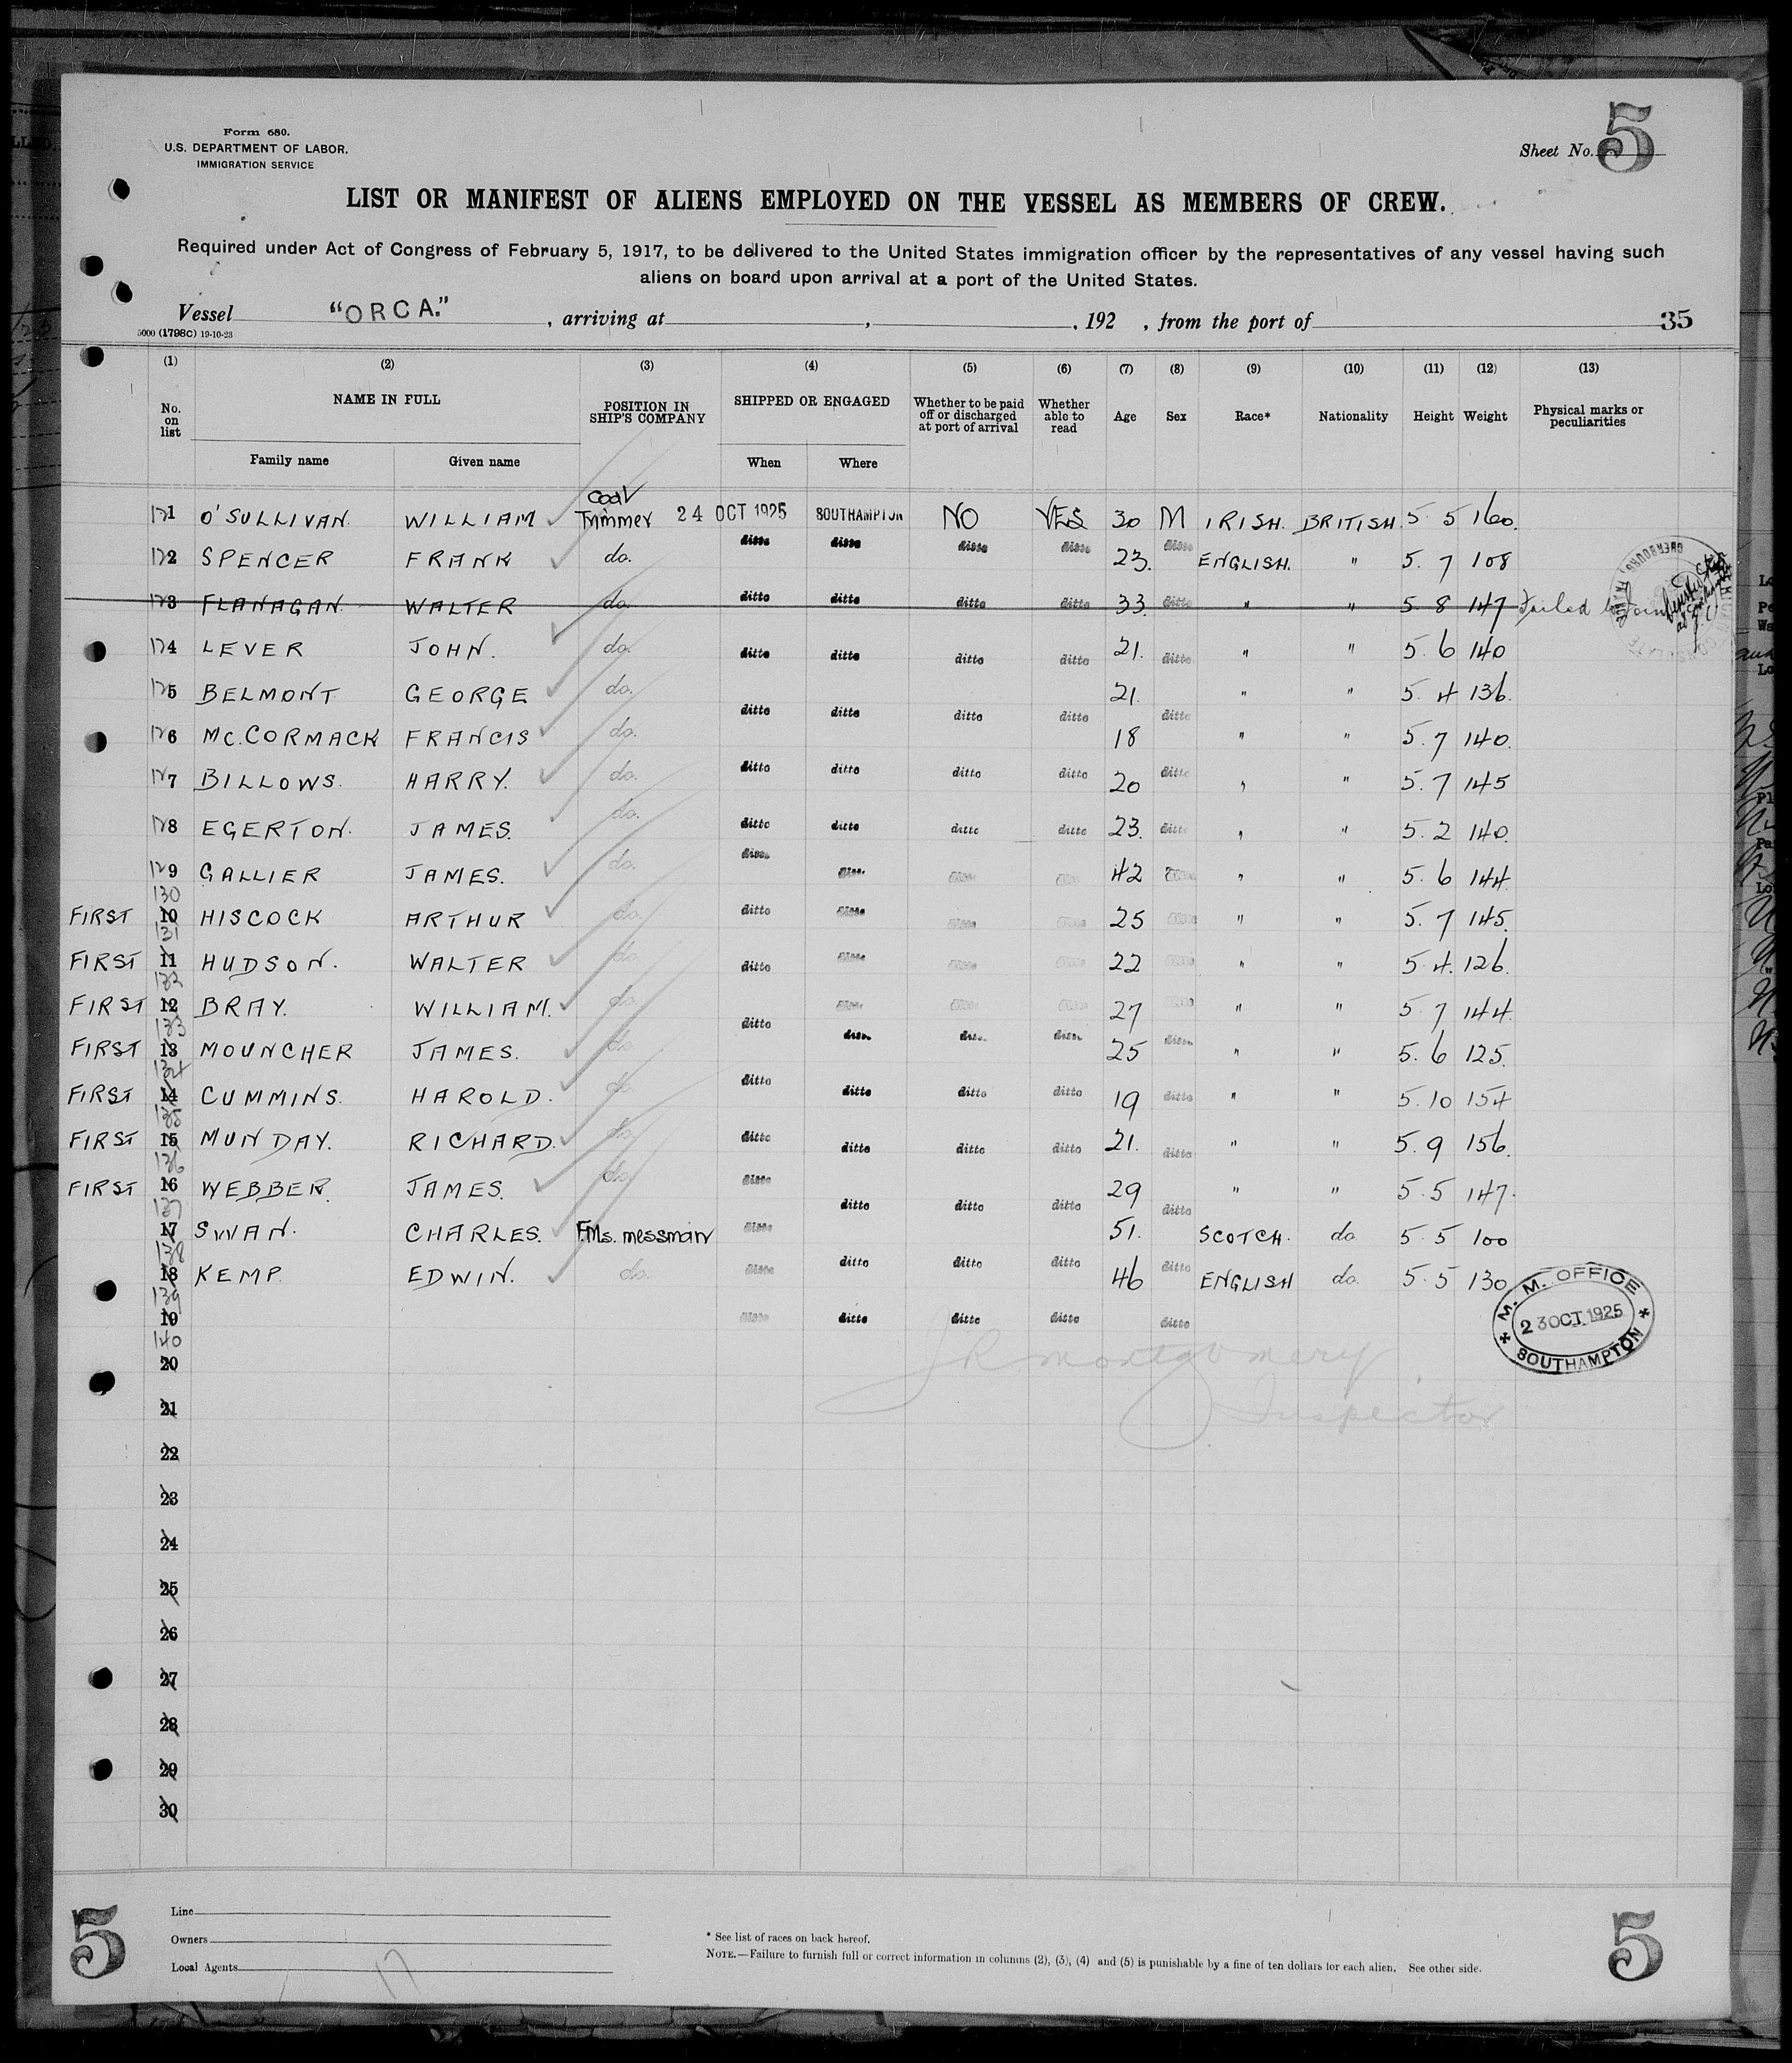 Form 680.
U.S. DEPARTMENT OF LABOR.
IMMIGRATION SERVICE
Sheet No. 5
LIST OR MANIFEST OF ALIENS EMPLOYED ON THE VESSEL AS MEMBERS OF CREW.
Required under Act of Congress of February 5, 1917, to be delivered to the United States immigration officer by the representatives of any vessel having such
aliens on board upon arrival at a port of the United States.
Vessel "ORCA." , arriving at , , 192 , from the port of 35
5000 (1798C) 19-10-23
(1) (2) (3) (4) (5) (6) (7) (8) (9) (10) (11) (12) (13)
No. on list NAME IN FULL POSITION IN SHIP'S COMPANY SHIPPED OR ENGAGED Whether to be paid off or discharged at port of arrival Whether able to read Age Sex Race* Nationality Height Weight Physical marks or peculiarities
Family name Given name When Where
121 O'SULLIVAN. WILLIAM Coal Trimmer 24 OCT 1925 SOUTHAMPTON NO YES 30 M IRISH. BRITISH. 5 5 160.
122 SPENCER FRANK do. ditto ditto ditto ditto 23. ditto ENGLISH. " 5. 7 108
123 FLANAGAN. WALTER do. ditto ditto ditto ditto 33. ditto " " 5 8 147 Failed to Join
124 LEVER JOHN. do. ditto ditto ditto ditto 21. ditto " " 5. 6 140
125 BELMONT GEORGE do. 21. " " 5. 4 136.
126 Mc.CORMACK FRANCIS do. ditto ditto ditto ditto 18 ditto " " 5. 7 140.
127 BILLOWS. HARRY. do. ditto ditto ditto ditto 20 ditto " " 5. 7 145
128 EGERTON. JAMES. do. ditto ditto ditto ditto 23. ditto " " 5. 2 140.
129 GALLIER JAMES. do. ditto ditto ditto ditto 42 ditto " " 5. 6 144.
130
FIRST 10 HISCOCK ARTHUR do. ditto ditto ditto ditto 25 ditto " " 5. 7 145.
131
FIRST 11 HUDSON. WALTER do. ditto ditto ditto ditto 22 ditto " " 5. 4. 126.
132
FIRST 12 BRAY. WILLIAM. do. ditto ditto ditto ditto 27 ditto " " 5. 7 144.
133
FIRST 13 MOUNCHER JAMES. do. ditto ditto ditto ditto 25 ditto " " 5. 6 125.
134
FIRST 14 CUMMINS. HAROLD. do. ditto ditto ditto ditto 19 ditto " " 5. 10 154
135
FIRST 15 MUNDAY. RICHARD. do. ditto ditto ditto ditto 21. ditto " " 5. 9 156.
136
FIRST 16 WEBBER. JAMES. do. ditto ditto ditto ditto 29 ditto " " 5. 5 147.
137
17 SWAN. CHARLES. F.Ms. messman ditto 51. SCOTCH. do 5 5 100
138
18 KEMP. EDWIN. do. ditto ditto ditto ditto 46 ditto ENGLISH do. 5. 5 130
139
19 ditto ditto ditto ditto ditto
140
20
J R Montgomery
Inspector
M. M. OFFICE
23 OCT 1925
SOUTHAMPTON
21
22
23
24
25
26
27
28
29
30
5
Line
Owners
Local Agents
17
* See list of races on back hereof.
NOTE.—Failure to furnish full or correct information in columns (2), (3), (4) and (5) is punishable by a fine of ten dollars for each alien. See other side.
5